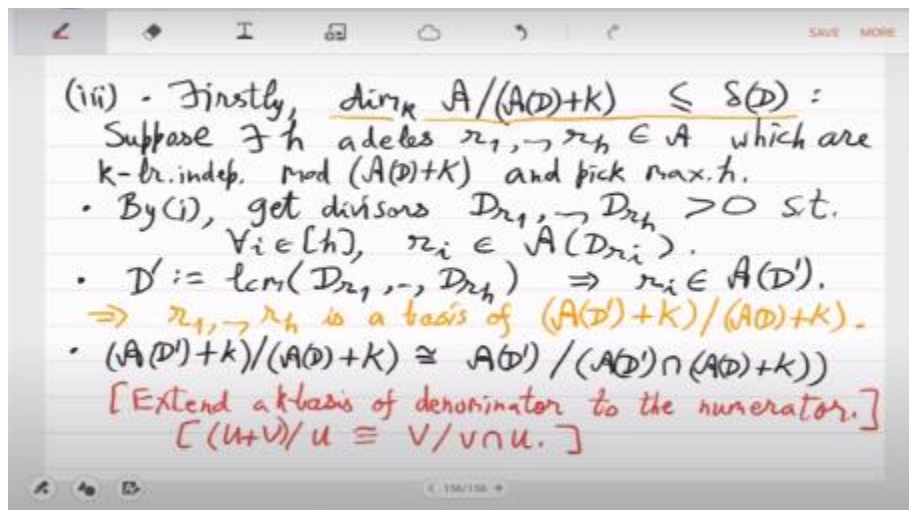 SAVE MORE
(iii) · Firstly, dim_k A/(A(D)+K) ≤ δ(D) :
Suppose ∃ h adeles r_1,..,r_h ∈ A which are
k-lr.indep. mod (A(D)+K) and pick max. h.
· By (i), get divisors D_{r_1},..,D_{r_h} > 0 s.t.
∀i∈[h], r_i ∈ A(D_{r_i}).
· D' := lcm(D_{r_1},..,D_{r_h}) ⇒ r_i ∈ A(D').
⇒ r_1,..,r_h is a basis of (A(D')+K)/(A(D)+K).
· (A(D')+K)/(A(D)+K) ≅ A(D')/(A(D')∩(A(D)+K))
[Extend a k-basis of denominator to the numerator.]
[(U+V)/U ≅ V/V∩U.]
< 156/156 +